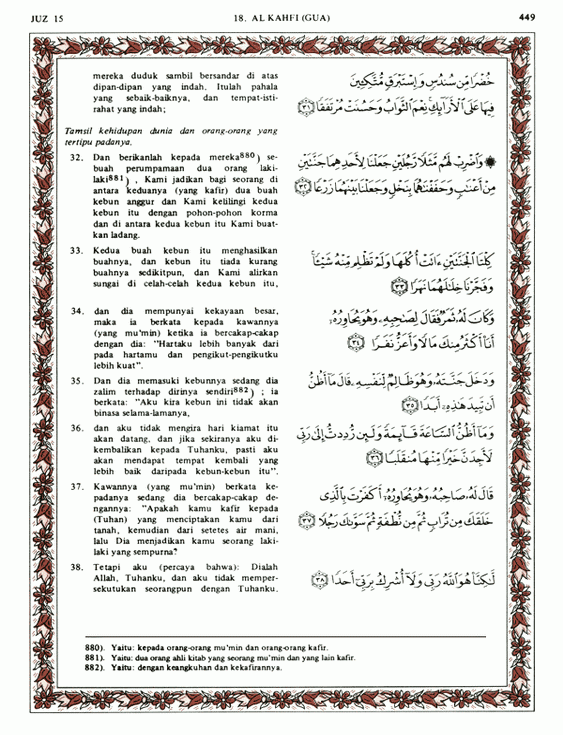 JUZ 15
18. AL KAHFI (GUA)
449
mereka duduk sambil bersandar di atas
dipan-dipan yang indah. Itulah pahala
yang sebaik-baiknya, dan tempat-isti-
rahat yang indah;
Tamsil kehidupan dunia dan orang-orang yang
tertipu padanya.
32. Dan berikanlah kepada mereka880) se-
buah perumpamaan dua orang laki-
laki881) , Kami jadikan bagi seorang di
antara keduanya (yang kafir) dua buah
kebun anggur dan Kami kelilingi kedua
kebun itu dengan pohon-pohon korma
dan di antara kedua kebun itu Kami buat-
kan ladang.
33. Kedua buah kebun itu menghasilkan
buahnya, dan kebun itu tiada kurang
buahnya sedikitpun, dan Kami alirkan
sungai di celah-celah kedua kebun itu,
34. dan dia mempunyai kekayaan besar,
maka ia berkata kepada kawannya
(yang mu'min) ketika ia bercakap-cakap
dengan dia: "Hartaku lebih banyak dari
pada hartamu dan pengikut-pengikutku
lebih kuat".
35. Dan dia memasuki kebunnya sedang dia
zalim terhadap dirinya sendiri882) ; ia
berkata: "Aku kira kebun ini tidak akan
binasa selama-lamanya,
36. dan aku tidak mengira hari kiamat itu
akan datang, dan jika sekiranya aku di-
kembalikan kepada Tuhanku, pasti aku
akan mendapat tempat kembali yang
lebih baik daripada kebun-kebun itu".
37. Kawannya (yang mu'min) berkata ke-
padanya sedang dia bercakap-cakap de-
ngannya: "Apakah kamu kafir kepada
(Tuhan) yang menciptakan kamu dari
tanah, kemudian dari setetes air mani,
lalu Dia menjadikan kamu seorang laki-
laki yang sempurna?
38. Tetapi aku (percaya bahwa): Dialah
Allah, Tuhanku, dan aku tidak memper-
sekutukan seorangpun dengan Tuhanku.
خُضْرًا مِّن سُندُسٍ وَإِسْتَبْرَقٍ مُّتَّكِـِٔينَ
فِيهَا عَلَى ٱلْأَرَآئِكِ نِعْمَ ٱلثَّوَابُ وَحَسُنَتْ مُرْتَفَقًا ۝٣١
۞ وَٱضْرِبْ لَهُم مَّثَلًا رَّجُلَيْنِ جَعَلْنَا لِأَحَدِهِمَا جَنَّتَيْنِ
مِنْ أَعْنَٰبٍ وَحَفَفْنَٰهُمَا بِنَخْلٍ وَجَعَلْنَا بَيْنَهُمَا زَرْعًا ۝٣٢
كِلْتَا ٱلْجَنَّتَيْنِ ءَاتَتْ أُكُلَهَا وَلَمْ تَظْلِم مِّنْهُ شَيْـًٔا
وَفَجَّرْنَا خِلَٰلَهُمَا نَهَرًا ۝٣٣
وَكَانَ لَهُۥ ثَمَرٌ فَقَالَ لِصَٰحِبِهِۦ وَهُوَ يُحَاوِرُهُۥٓ
أَنَا۠ أَكْثَرُ مِنكَ مَالًا وَأَعَزُّ نَفَرًا ۝٣٤
وَدَخَلَ جَنَّتَهُۥ وَهُوَ ظَالِمٌ لِّنَفْسِهِۦ قَالَ مَآ أَظُنُّ
أَن تَبِيدَ هَٰذِهِۦٓ أَبَدًا ۝٣٥
وَمَآ أَظُنُّ ٱلسَّاعَةَ قَآئِمَةً وَلَئِن رُّدِدتُّ إِلَىٰ رَبِّى
لَأَجِدَنَّ خَيْرًا مِّنْهَا مُنقَلَبًا ۝٣٦
قَالَ لَهُۥ صَاحِبُهُۥ وَهُوَ يُحَاوِرُهُۥٓ أَكَفَرْتَ بِٱلَّذِى
خَلَقَكَ مِن تُرَابٍ ثُمَّ مِن نُّطْفَةٍ ثُمَّ سَوَّىٰكَ رَجُلًا ۝٣٧
لَّٰكِنَّا۠ هُوَ ٱللَّهُ رَبِّى وَلَآ أُشْرِكُ بِرَبِّىٓ أَحَدًا ۝٣٨
880). Yaitu: kepada orang-orang mu'min dan orang-orang kafir.
881). Yaitu: dua orang ahli kitab yang seorang mu'min dan yang lain kafir.
882). Yaitu: dengan keangkuhan dan kekafirannya.